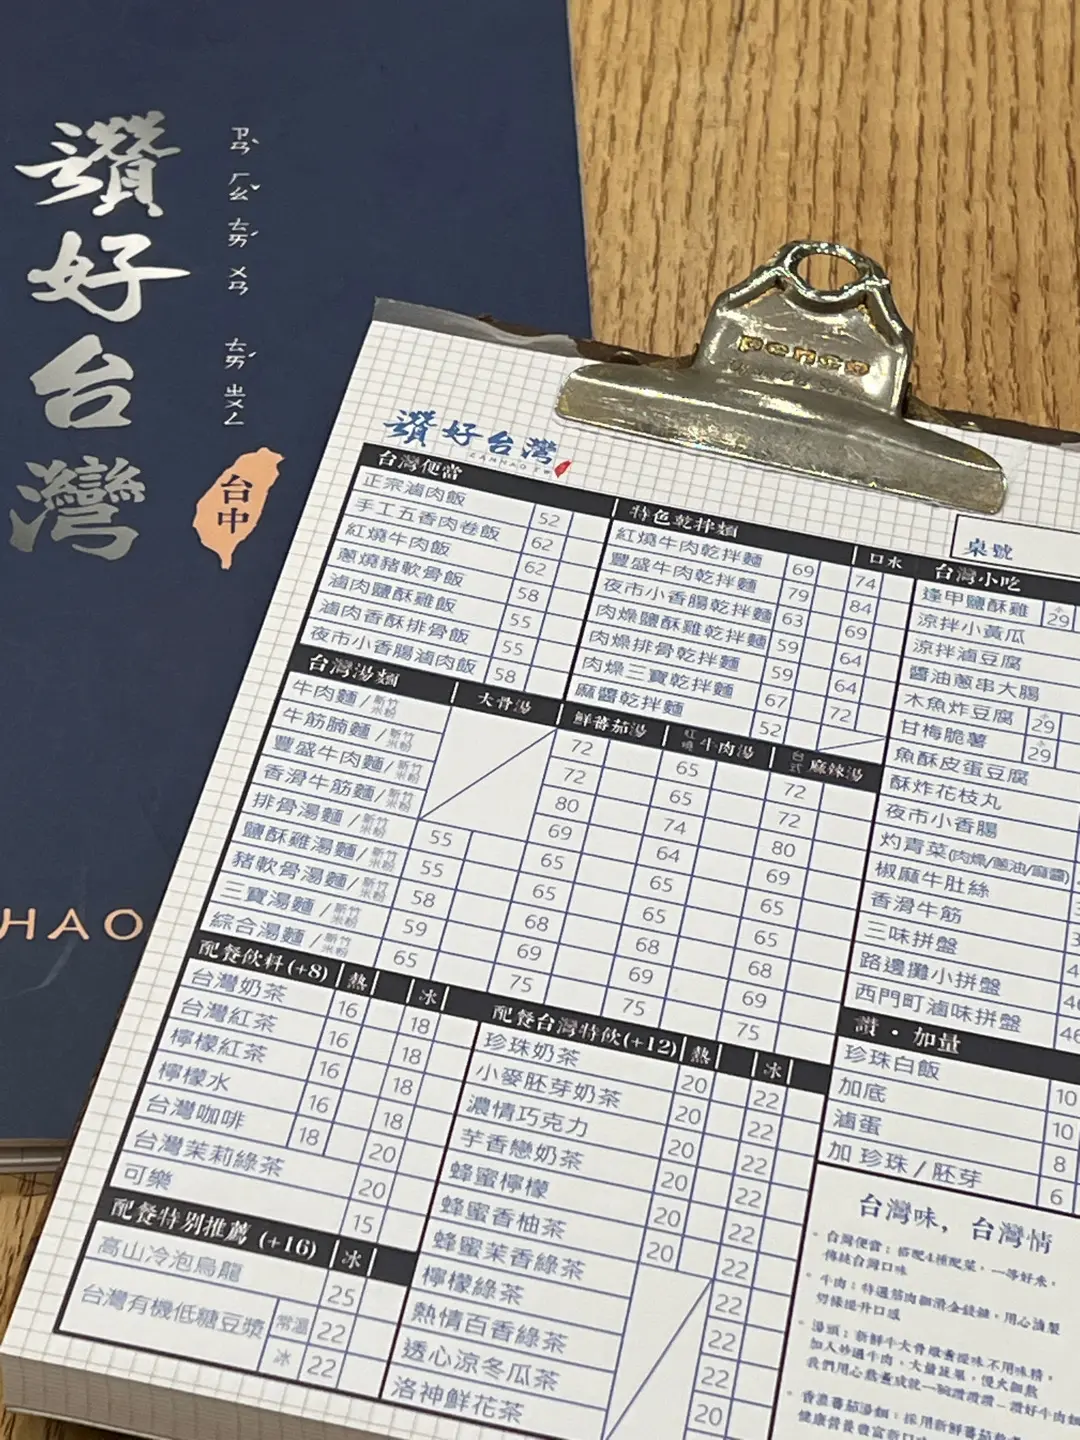 讚好台灣
ㄗㄢˋ ㄏㄠˇ ㄊㄞˊ ㄨㄢ ㄊㄞˊ ㄓㄨㄥ
台中
HAO
penco
讚好台灣
ZANHAO TW
桌號
台灣便當
正宗滷肉飯 52
手工五香肉卷飯 62
紅燒牛肉飯 62
蔥燒豬軟骨飯 58
滷肉鹽酥雞飯 55
滷肉香酥排骨飯 55
夜市小香腸滷肉飯 58
特色乾拌麵 口水
紅燒牛肉乾拌麵 69 74
豐盛牛肉乾拌麵 79 84
夜市小香腸乾拌麵 63 69
肉燥鹽酥雞乾拌麵 59 64
肉燥排骨乾拌麵 59 64
肉燥三寶乾拌麵 67 72
麻醬乾拌麵 52
台灣湯麵 大骨湯 鮮蕃茄湯 紅燒牛肉湯 台式麻辣湯
牛肉麵/新竹米粉 72 65 72
牛筋腩麵/新竹米粉 72 65 72
豐盛牛肉麵/新竹米粉 80 74 80
香滑牛筋麵/新竹米粉 69 64 69
排骨湯麵/新竹米粉 55 65 65 65
鹽酥雞湯麵/新竹米粉 55 65 65 65
豬軟骨湯麵/新竹米粉 58 68 68 68
三寶湯麵/新竹米粉 59 69 69 69
綜合湯麵/新竹米粉 65 75 75 75
配餐飲料(+8) 熱 冰
台灣奶茶 16 18
台灣紅茶 16 18
檸檬紅茶 16 18
檸檬水 16 18
台灣咖啡 18 20
台灣茉莉綠茶 20
可樂 15
配餐特別推薦 (+16) 冰
高山冷泡烏龍 25
台灣有機低糖豆漿 常溫 22
冰 22
配餐台灣特飲(+12) 熱 冰
珍珠奶茶 20 22
小麥胚芽奶茶 20 22
濃情巧克力 20 22
芋香戀奶茶 20 22
蜂蜜檸檬 20 22
蜂蜜香柚茶 20 22
蜂蜜茉香綠茶 22
檸檬綠茶 22
熱情百香綠茶 22
透心涼冬瓜茶 20
洛神鮮花茶
台灣小吃
逢甲鹽酥雞 小29
涼拌小黃瓜
涼拌滷豆腐
醬油蔥串大腸
木魚炸豆腐 小29
甘梅脆薯 小29
魚酥皮蛋豆腐
酥炸花枝丸
夜市小香腸
灼青菜(肉燥/蔥油/麻醬)
椒麻牛肚絲
香滑牛筋
三味拼盤
路邊攤小拼盤
西門町滷味拼盤 46
讚・加量
珍珠白飯 10
加底 10
滷蛋 8
加 珍珠 / 胚芽 6
台灣味，台灣情
台灣便當：搭配4種配菜，一等好米，
傳統台灣口味
牛肉：特選筋肉細滑金錢腱，用心滷製
切條提升口感
湯頭：新鮮牛大骨燉煮提味不用味精，
加入炒過牛肉，大量蔬菜，慢火細熬
我們用心熬煮成就一碗讚讚讚－讚好牛肉
香濃蕃茄湯麵：採用新鮮蕃茄
健康營養豐富新口